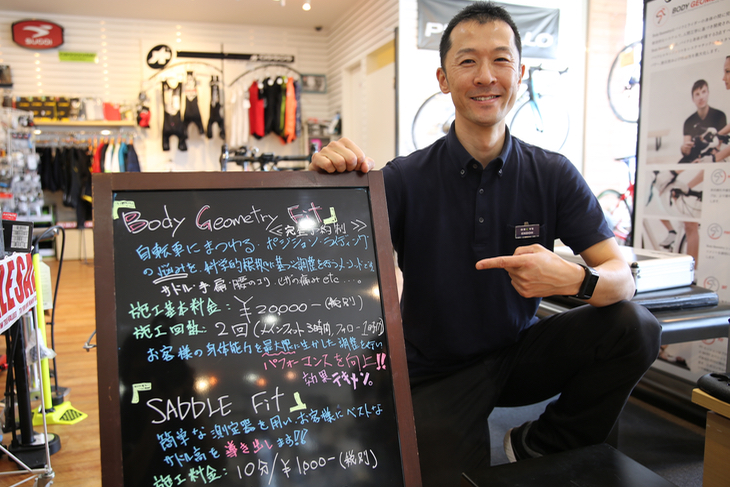 Body Geometry Fit
≪完全予約制≫
自転車にまつわる、ポジション・ライディング
の悩みを、科学的根拠に基づく調整を行うメソッドです
サドル・手・肩・腰のコリ、ヒザの痛み etc...。
施工基本料金: ¥20000-(税別)
施工回数: 2回(メインフィット3時間、フォロー1時間)
お客様の身体能力を最大限に生かした調整を行い
パフォーマンスを向上!!
効果テキメン
SADDLE Fit
簡単な測定器を用い、お客様にベストな
サドル高を導き出します!!
施工料金: 10分/¥1000-(税別)
BODY GEOME